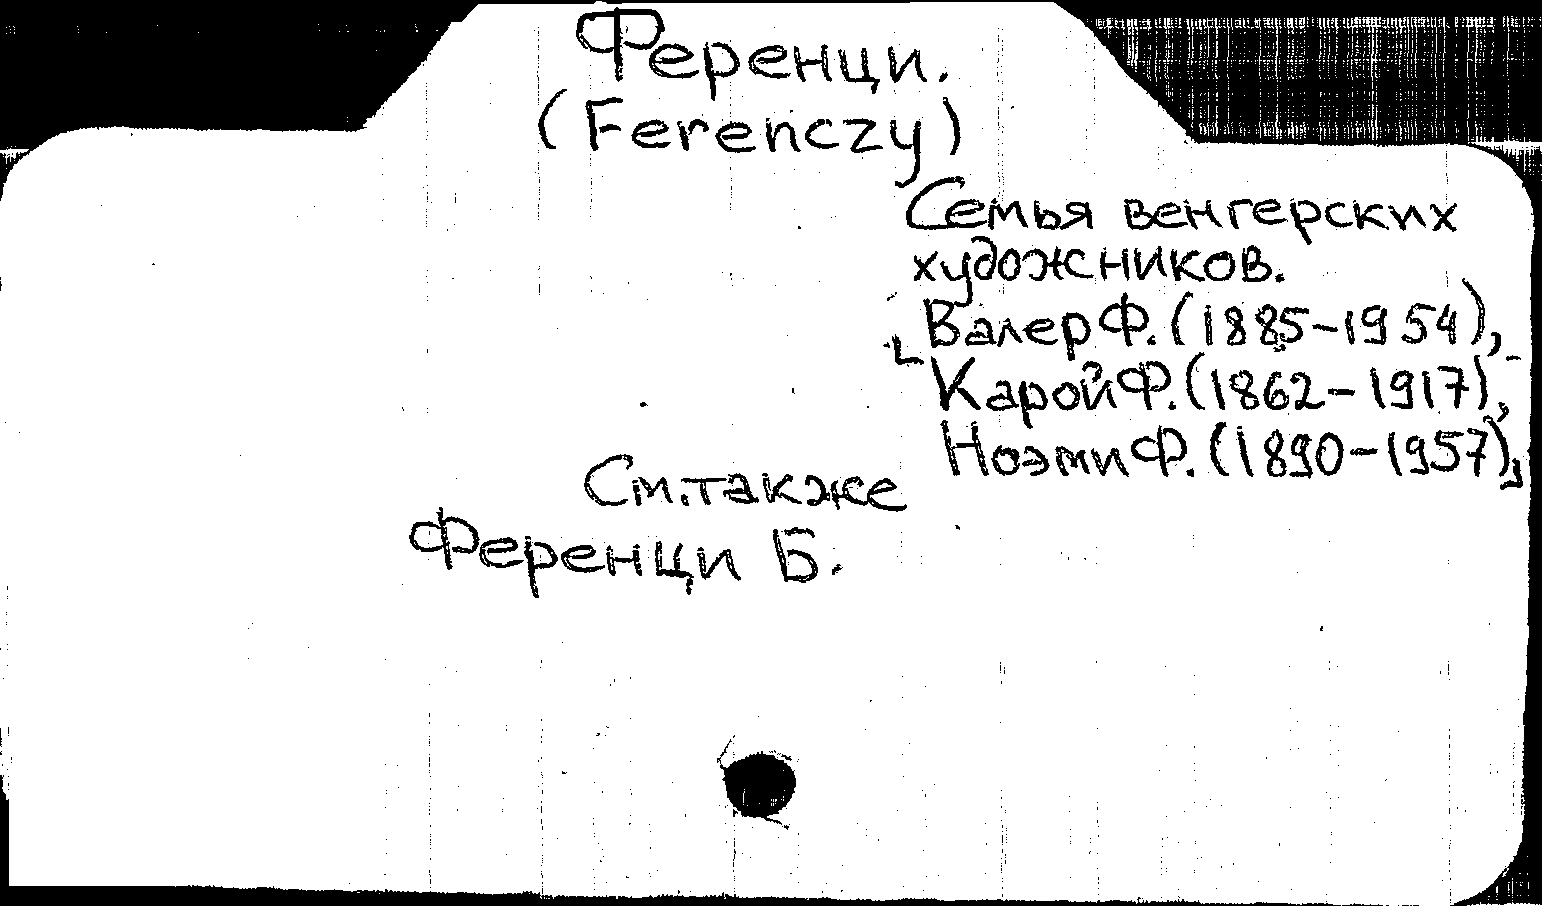 Ференци.
(Ferenczy)
Семья венгерских
художников.
Валер Ф. (1885-1954),
Карой Ф. (1862-1917),
Ноэми Ф. (1890-1957),
См. также
Ференци Б.